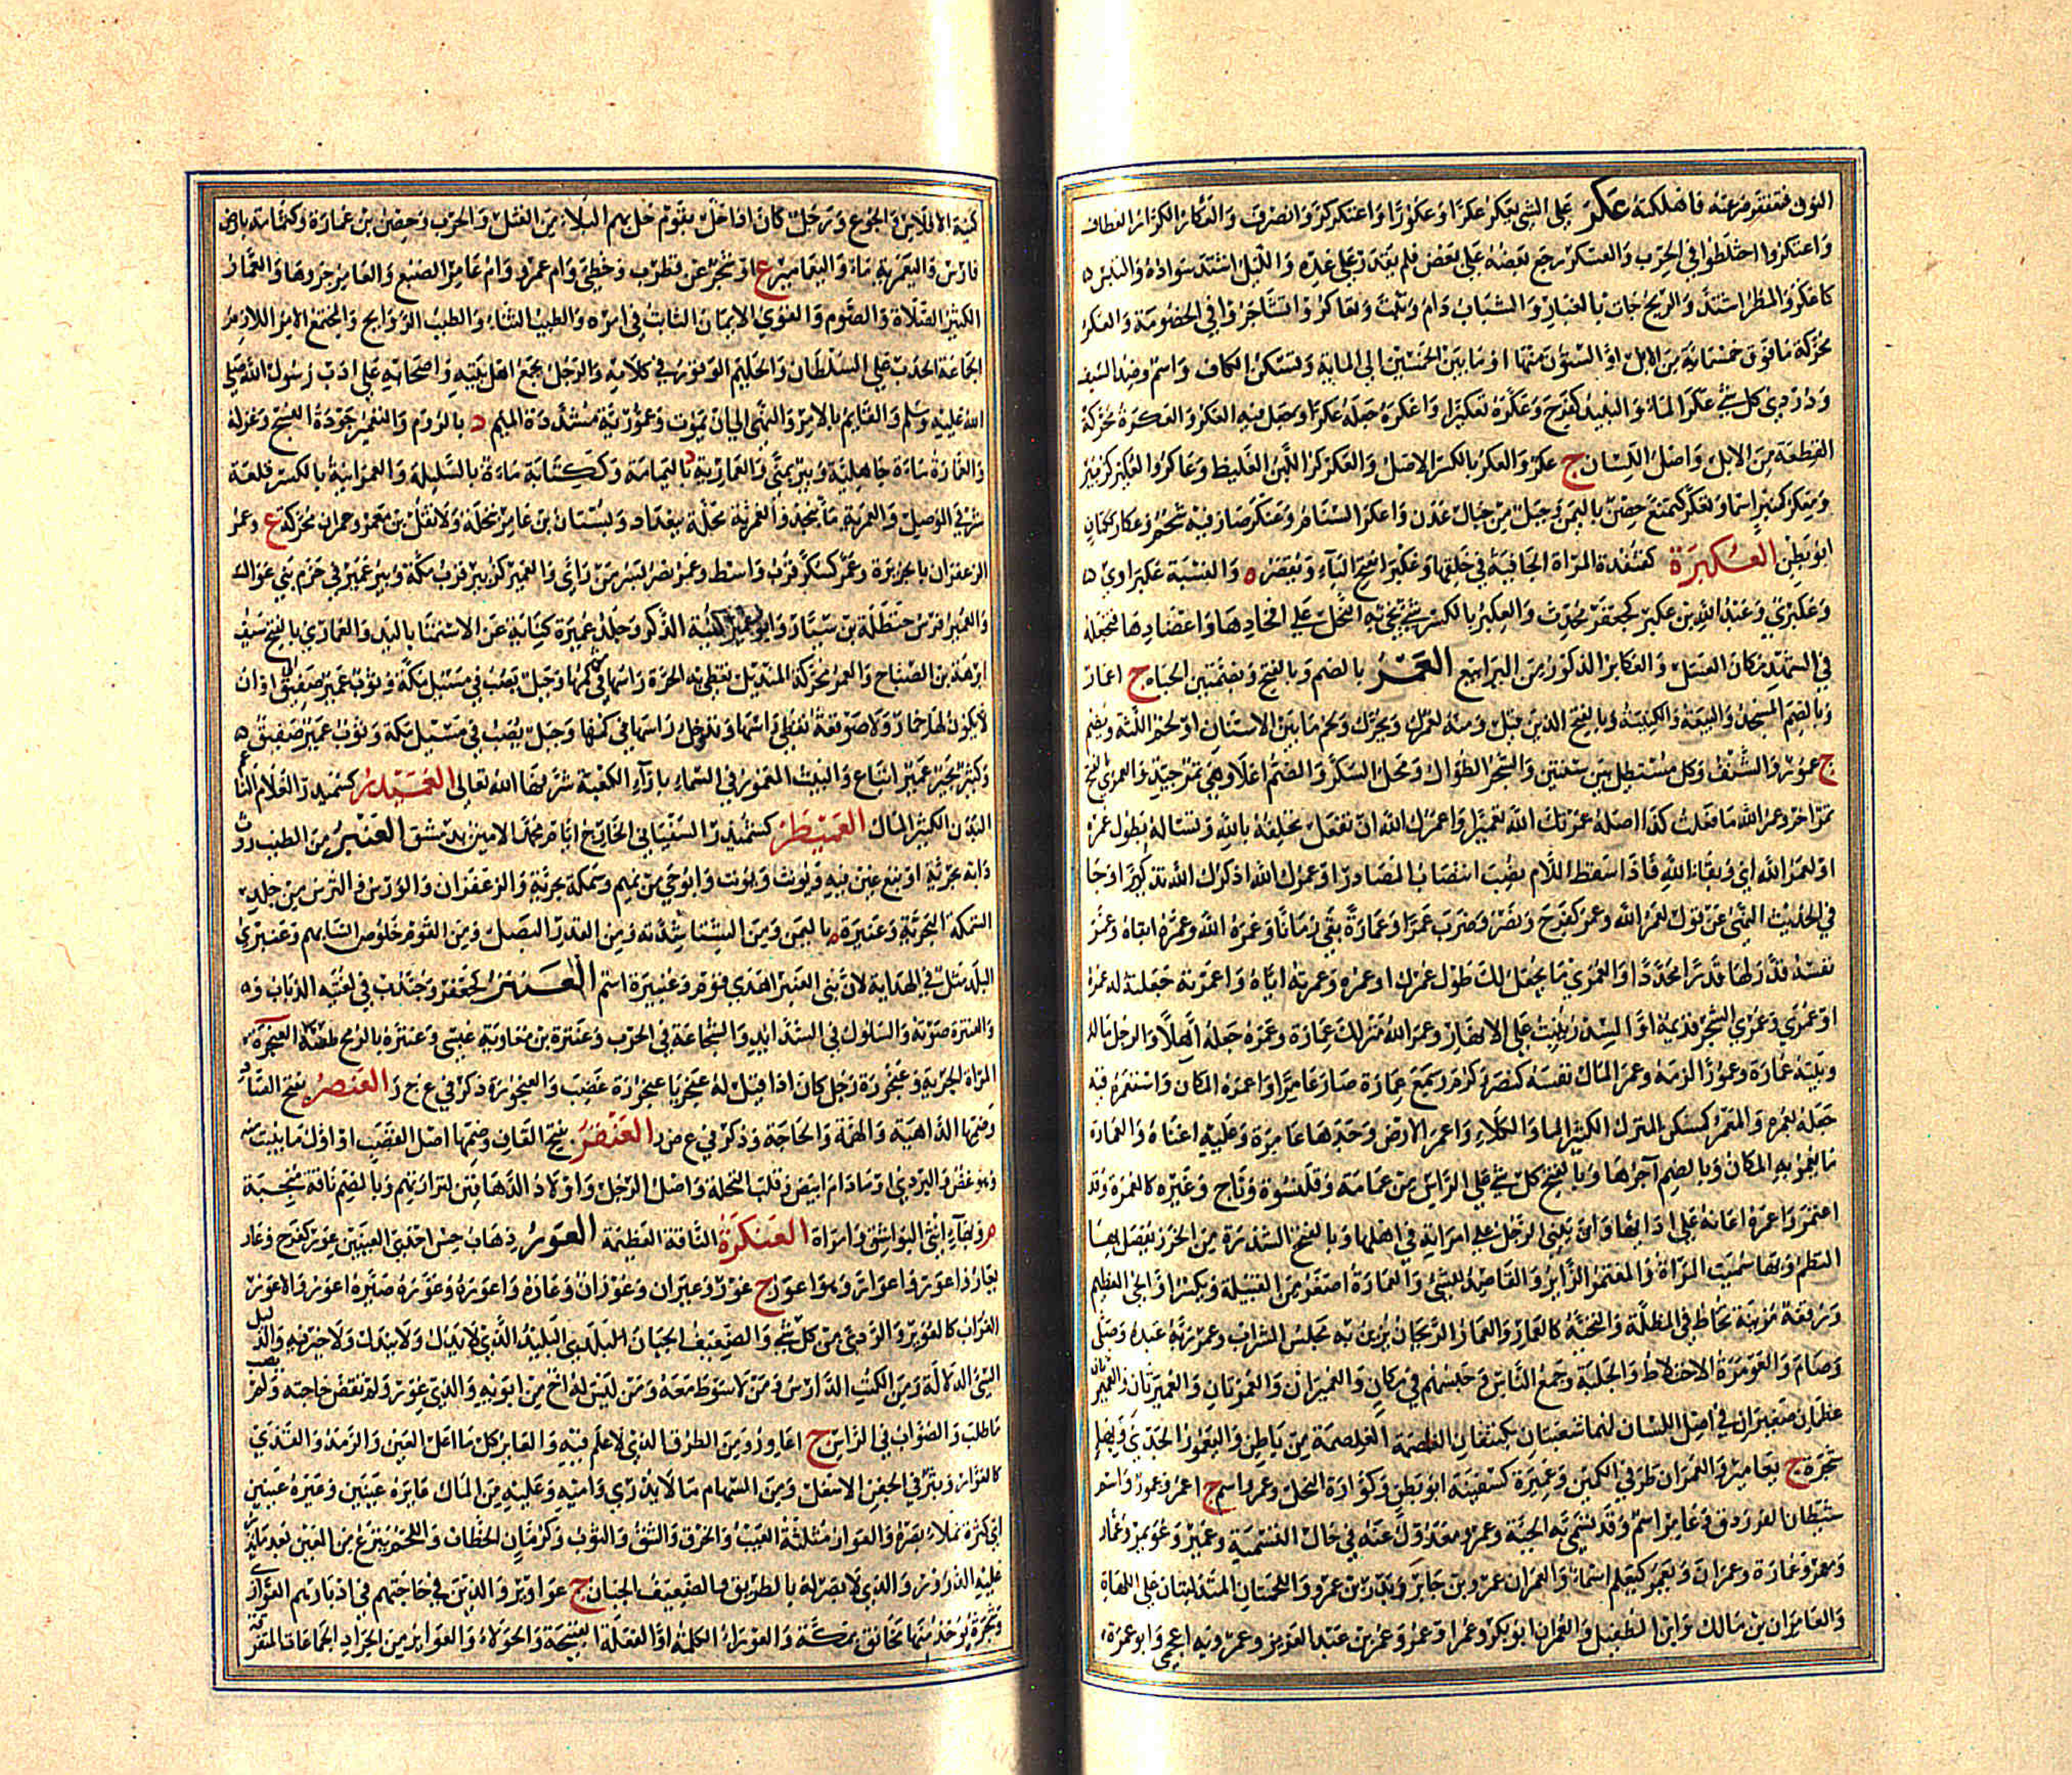 النوق فتنفر منه فاهلكه عَكَرَ على الشئ يعكر عكرا وعكورا واعتكر كرّ وانصرف والعكار الكرار العطاف
واعتكروا اختلطوا في الحرب والعسكر رجع بعضه على بعض فلم يقدر على عده والليل اشتد سواده والتبس
كاعكر والمطر اشتد والريح جات بالغبار والشباب دام وثبت وتعاكروا تشاجروا في الخصومة والعكر
محركة ما فوق خمسمائة من الابل او الستون منها او ما بين الخمسين الى المائة وتسكن الكاف واسم وصدا السيف
ودردي كل شئ عكر الماء والنبيذ كفرح وعكره تعكيرا واعكره جعله عكرا وجعل فيه العكر والعكرة محركة
القطعة من الابل واصل اللسان ج عكر والعكر بالكسر الاصل والعكركر اللبن الغليظ وعاكر والعكير كزبير
ومعكر كمنبر اسما وتعكر كتمنع حصن باليمن وجبل من جبال عدن واعكر السنام وعنكر صار فيه شحم وعكار ككتان
ابو بطن العكبرة كقنفذة المراة الجافية في خلقها وعكبرا بفتح الباء ويقصر ه والنسبة عكبراوي
وعكبري وعبد الله بن عكبر كجعفر محدث والعكبر بالكسر شئ تجئ به النحل على افخاذها واعضادها فتجعله
في الشهد مكان العسل والعكابر الذكور من اليرابيع العَمْرُ بالضم وبالفتح وبضمتين الحياة ج اعمار
وبالضم المسجد والبيعة والكنيسة وبالفتح الدين قيل ومنه لعمرك ويحرك ولحم ما بين الاسنان او لحم اللثة ويضم
ج عمور والشنف وكل مستطيل بين سنتين والشجر الطوال ومحل السكر والضم اعلا وهي تمر جيد والعمري بالفتح
تمر اخر وعمر الله ما فعلت كذا اصله عمرتك الله تعميرا واعمرك الله ان تفعل تحلفه بالله وتساله بطول عمره
او لعمر الله اي وبقاء الله فاذا اسقط اللام نصب انتصاب المصادر او عمرك الله اذكرك الله تذكيرا وجا
في الحديث النهي عن قول لعمر الله وعمر كفرح ونصر وضرب عمرا وعمارة بقي زمانا وعمره الله وعمره ابقاه وعمر
نفسه قدر لها قدرا محدودا والعمري ما يجعل لك طول عمرك او عمره وعمرته اياه واعمرته جعلته له عمره
او عمري وعمري الشجر قديمه او السدر ينبت على الانهار وعمر الله منزلك عمارة وعمره جعله آهلا والرجل ماله
وبيته عمارة وعمورا لزمه وعمر المال نفسه كنصر وكرم وسمع عمارة صار عامرا واعمره المكان واستعمره فيه
جعله يعمره والمعمر كمسكن المنزل الكثير الما والكلاء واعمر الارض وجدها عامرة وعليه اغناه والعمارة
ما يعمر به المكان وبالضم آجرها وبالفتح كل شئ على الراس من عمامة وقلنسوة وتاج وغيره كالعمرة وقد
اعتمر واعمره اعانه على اداتها وان يبني الرجل على امراته في اهلها وبالفتح الشذرة من الخرز يفصل بها
النظم وبها سميت المراة والمعتمر الزائر والقاصد للشئ والعمارة اصغر من القبيلة ويكسر او الحي العظيم
ورقعة مزينة تخاط في المظلة والتحية كالعمار والعمار الريحان يزين به مجلس الشراب وعمر ربه عبده وصلى
وصام والعومرة الاختلاط والجلبة وجمع الناس وحبسهم في مكان والعميران والعمرتان والعميرتان والعميمرتان
عظمان صغيران في اصل اللسان لهما شعبتان يكتنفان الغلصمة من باطن واليعمور الجدي وبها
شجرة ج يعامير والعمران طرفي الكمين وعميرة كسفينة ابو بطن وكوارة النحل وعمرو اسم ج اعمر وعمور واسم
شيطان الفرزدق وعامر اسم وقد يسمى به الحية وعمر معدول عنه في حال التسمية وعمير وعويمر وعمار
ومعمر وعمارة وعمران ويعمر كيعلم اسماء والعمران عمرو بن جابر وبدر بن عمرو واللحمتان المتدليتان على اللهاة
والعامران بن مالك وابن الطفيل والعمران ابو بكر وعمر او عمر وعمر بن عبد العزيز وعمرويه اعجمي وابو عمرة
كنية الافلاس والجوع ورجل كان اذا حل بقوم حل بهم البلاء من القتل والحرب وحصن بن عمارة وكثمامة بارض
فارس واليعمرية ماء واليعامير ع او شجر عن قطرب وخطئ وام عمرو وام عامر الضبع والعامر جروها والعمار
الكثير الصلاة والصوم والقوي الايمان الثابت في امره والطيب الثناء والطيب الروايح والمجتمع الامر اللازم
الجماعة الحدب على السلطان والحليم الوقور في كلامه والرجل يجمع اهل بيته واصحابه على ادب رسول الله صلى
الله عليه وسلم والقايم بالامر والنهي الى ان يموت وعمورية مشددة الميم د بالروم والتعمير جودة النسج وغزله
والعمارة ماءة جاهلية وبير بمنى والعمارية ة باليمامة وككتابة ماءة بالسليلة والعمرانية بالكسر قلعة
شرقي الموصل والعمرية ماء بنجد والعمرية محلة ببغداد وبستان بن عامر نخلة ولا تقل بن معمر وعمران محركة ع وعمر
الزعفران بالجزيرة وعمر كسكر قرب واسط وعمر نصر بسر من راي والعمير كزبير قرب مكة وبير عمير في حزم بني عوال
والعمير فرس حنظلة بن سيار وابو عمير كنية الذكر وجلد عميرة كناية عن الاستمنا باليد والعماري بالفتح سيف
ابرهة بن الصباح والعمر محركة المنديل تغطي به الحرة راسها
لا يكون لها خمار ولا صوقعة تغطي راسها فتدخل راسها في كمها وجبل يصب في مسيل مكة وثوب عمير صفيق
وكثير بجير عمير اتباع والبيت المعمور في السماء بازاء الكعبة شرفها الله تعالى العَمَيْدَرُ كسميدر الغلام النا
البدن الكثير المال العَمَيْطَرُ كسميدر السفياني الخارج ايام محمد الامين بدمشق العَنْبَرُ من الطيب روث
دابة بحرية او نبع عين فيه ويونث وابو حي من تميم وسمكة بحرية والزعفران والورس والترس من جلد
السمكة البحرية وعنبرة ة باليمن ومن الشتا شدته ومن القدر البصل ومن القوم خلوص انسابهم وعنبري
البلد مثل في الهداية لان بني العنبر اهدي قوم وعنيبرة اسم العَنْتَرُ كجعفر وجندب في لغتيه الذباب و
والعنترة صوته والسلوك في الشدائد والشجاعة في الحرب وعنترة بن معاوية عبسي وعنتره بالرمح طعنه العنجرة
المراة الجرية وعنجورة رجل كان اذا قيل له عنجر يا عنجورة غضب والعنجورة ذكر في ع ج ر العنصر بفتح الصاد
وضمها الداهية والهمة والحاجة وذكر في ع ص ر العَنْقَرُ بفتح القاف وضمها اصل القصب او اول ما ينبت منه
وهو غض والبردي او ما دام ابيض وقلب النخلة واصل الرجل واولاد الدهاقين لترارتهم وبالضم ناقة منجبة
وبهاء انثى البواشق وامراة العَنْكَرَةُ الناقة العظيمة العَوَرُ ذهاب حس احدى العينين عور كفرح وعار
يعار واعور واعوار وهو اعور ج عور وعيران وعوران وعاره واعوره وعوره صيره اعور والاعور
الغراب كالعوير والردي من كل شئ والضعيف الجبان البليد الذي لا يدل ولا يندل ولا خير فيه والدليل
السيئ الدلالة ومن الكتب الدارس ومن لا سوط معه ومن ليس له اخ من ابويه والذي عور ولم تقض حاجته ولم يصب
ما طلب والصواب في الراس ج اعاور ومن الطرق الذي لا علم فيه والعاير كل ما اعل العين والرمد والقذي
كالعوار وبثر في الجفن الاسفل ومن السهام ما لا يدري راميه وعليه من المال عايرة عينين وعيرة عينين
اي كثرة تملاء بصره والعوار مثلثة العيب والخرق والشق والثوب وكرمان الخطاف واللحم ينزع من العين بعد ما يذر
عليه الذرور والذي لا بصر له بالطريق والضعيف الجبان ج عواوير والذين في حاجتهم في ادبارهم العواري
وشجرة يوخذ منها مخانق بمكة والعوراء الكلمة او الفعلة القبيحة والحولاء والعواير من الجراد الجماعات المتفرقة